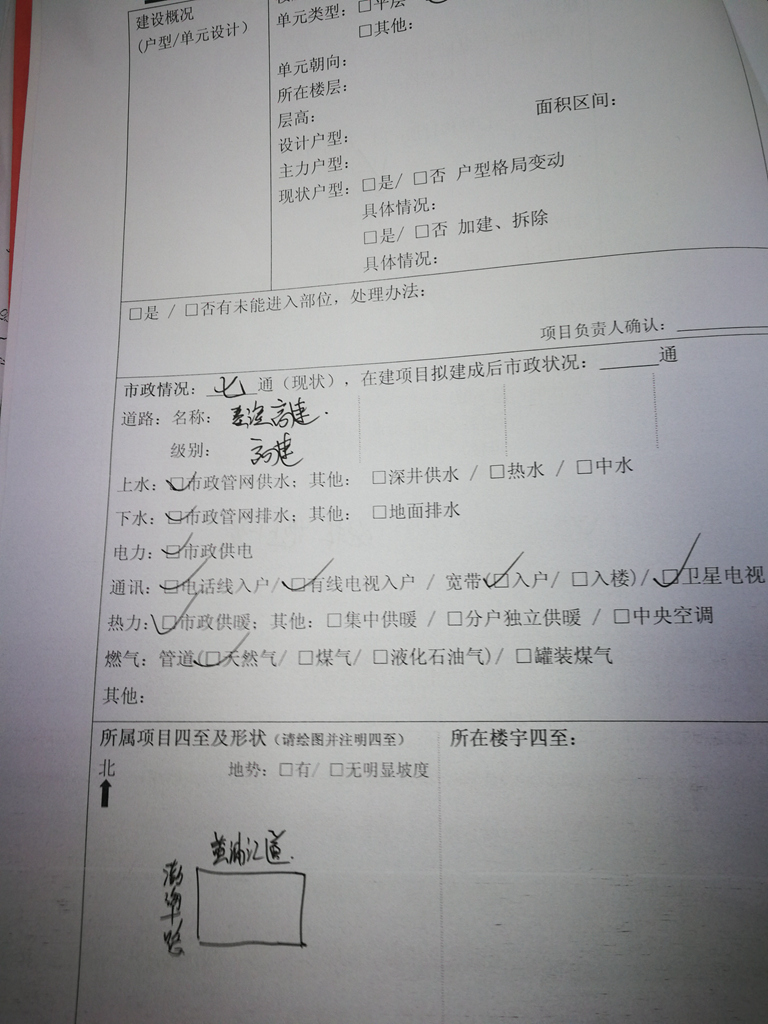 建设概况
(户型/单元设计)
单元类型：□平层
□其他：
单元朝向：
所在楼层：
层高：
面积区间：
设计户型：
主力户型：
现状户型：□是/ □否 户型格局变动
具体情况：
□是/ □否 加建、拆除
具体情况：
□是 / □否有未能进入部位，处理办法：
项目负责人确认：
市政情况：七通（现状），在建项目拟建成后市政状况：______通
道路：名称：
级别：
上水：□市政管网供水；其他： □深井供水 / □热水 / □中水
下水：□市政管网排水；其他： □地面排水
电力：□市政供电
通讯：□电话线入户/ □有线电视入户 / 宽带(□入户/ □入楼)/ □卫星电视
热力：□市政供暖；其他：□集中供暖 / □分户独立供暖 / □中央空调
燃气：管道(□天然气/ □煤气/ □液化石油气)/ □罐装煤气
其他：
所属项目四至及形状（请绘图并注明四至）
所在楼宇四至：
北
地势：□有/ □无明显坡度
黄浦江道